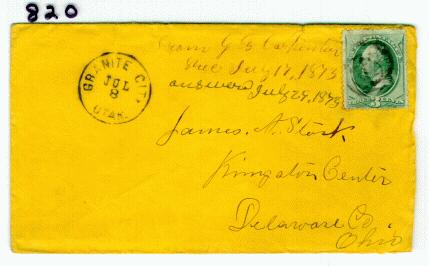 820
GRANITE CITY
JUL
8
UTAH.
From J B Carpenter
Recd July 17, 1873
answered July 29, 1873
James. A. Stark
Kingston Center
Delaware Co
Ohio